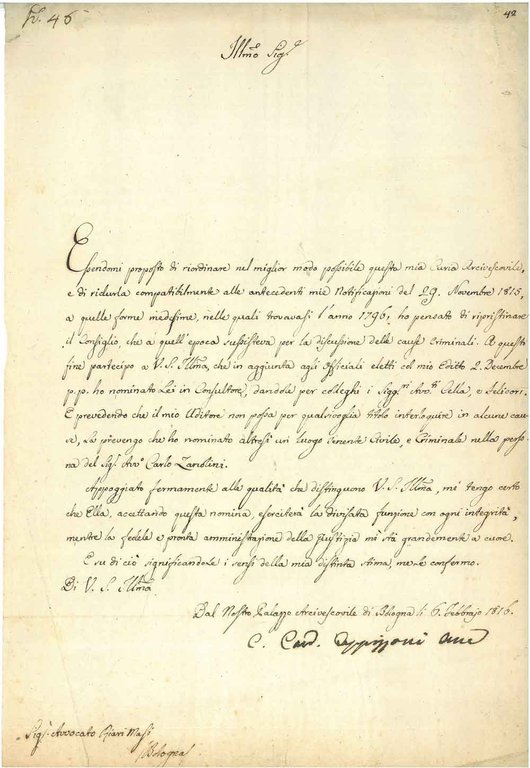 N. 46
42
Illmo Sig.e
Essendomi proposto di riordinare nel miglior modo possibile questa mia Curia Arcivescovile,
e di ridurla compatibilmente alle antecedenti mie Notificazioni del 29. Novembre 1815.
a quelle forme medesime, nelle quali trovavasi l'anno 1796, ho pensato di ripristinare
il Consiglio, che a quell'epoca sussisteva per la discussione delle cause Criminali. A questo
fine partecipo a V. S. Illma, che in aggiunta agli Officiali eletti col mio Editto 2. Decembre
p.p. ho nominato Lei in Consultore, dandole per colleghi i Sigg.ri Avv.ti Cella, e
E prevedendo che il mio Uditore non possa per qualsivoglia titolo interloquire in alcune cau-
se, La prevengo che ho nominato altresì un Luogo Tenente Civile, e Criminale nella perso-
na del Sig. Avv.o Carlo Zanolini.
Appoggiato fermamente alle qualità che distinguono V. S. Illma, mi tengo certo
che Ella, accettando questa nomina, eserciterà la divisata funzione con ogni integrità,
mentre la fedele e pronta amministrazione della Giustizia mi stà grandemente a cuore.
E su di ciò significandole i sensi della mia distinta stima, me le confermo.
Di V. S. Illma
Dal Nostro Palazzo Arcivescovile di Bologna li 6. Febbrajo 1816.
C. Card. Oppizzoni Arciv
Sig. Avvocato Masi
Bologna